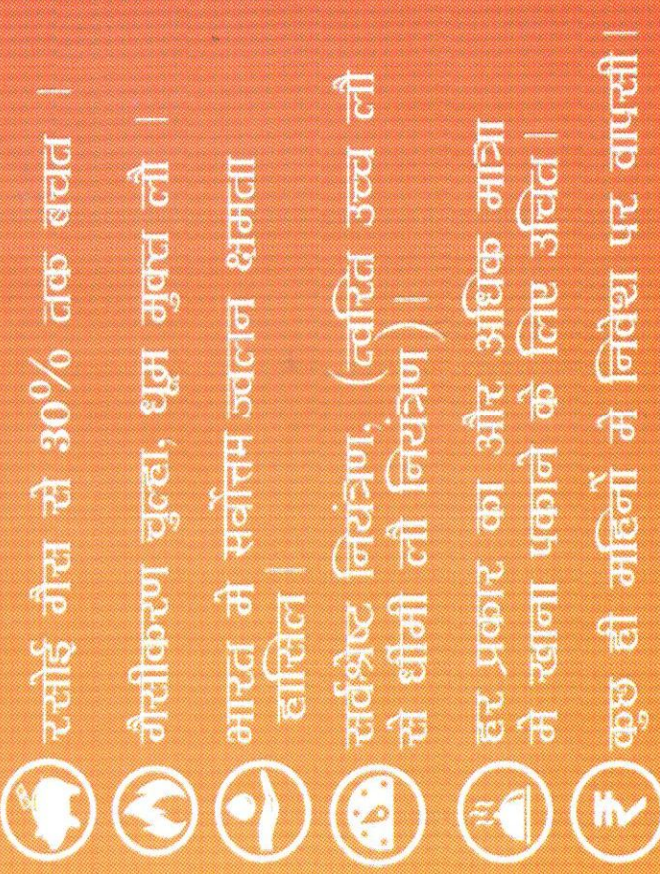 रसोई गैस से 30% तक बचत |
गैसीकरण चुल्हा, धूम्र मुक्त लौ |
भारत मे सर्वोत्तम ज्वलन क्षमता
हासिल |
सर्वश्रेष्ट नियंत्रण, (त्वरित उच्च लौ
से धीमी लौ नियंत्रण )|
हर प्रकार का और अधिक मात्रा
मे खाना पकाने के लिए उचित |
कुछ ही महिनों मे निवेश पर वापसी |